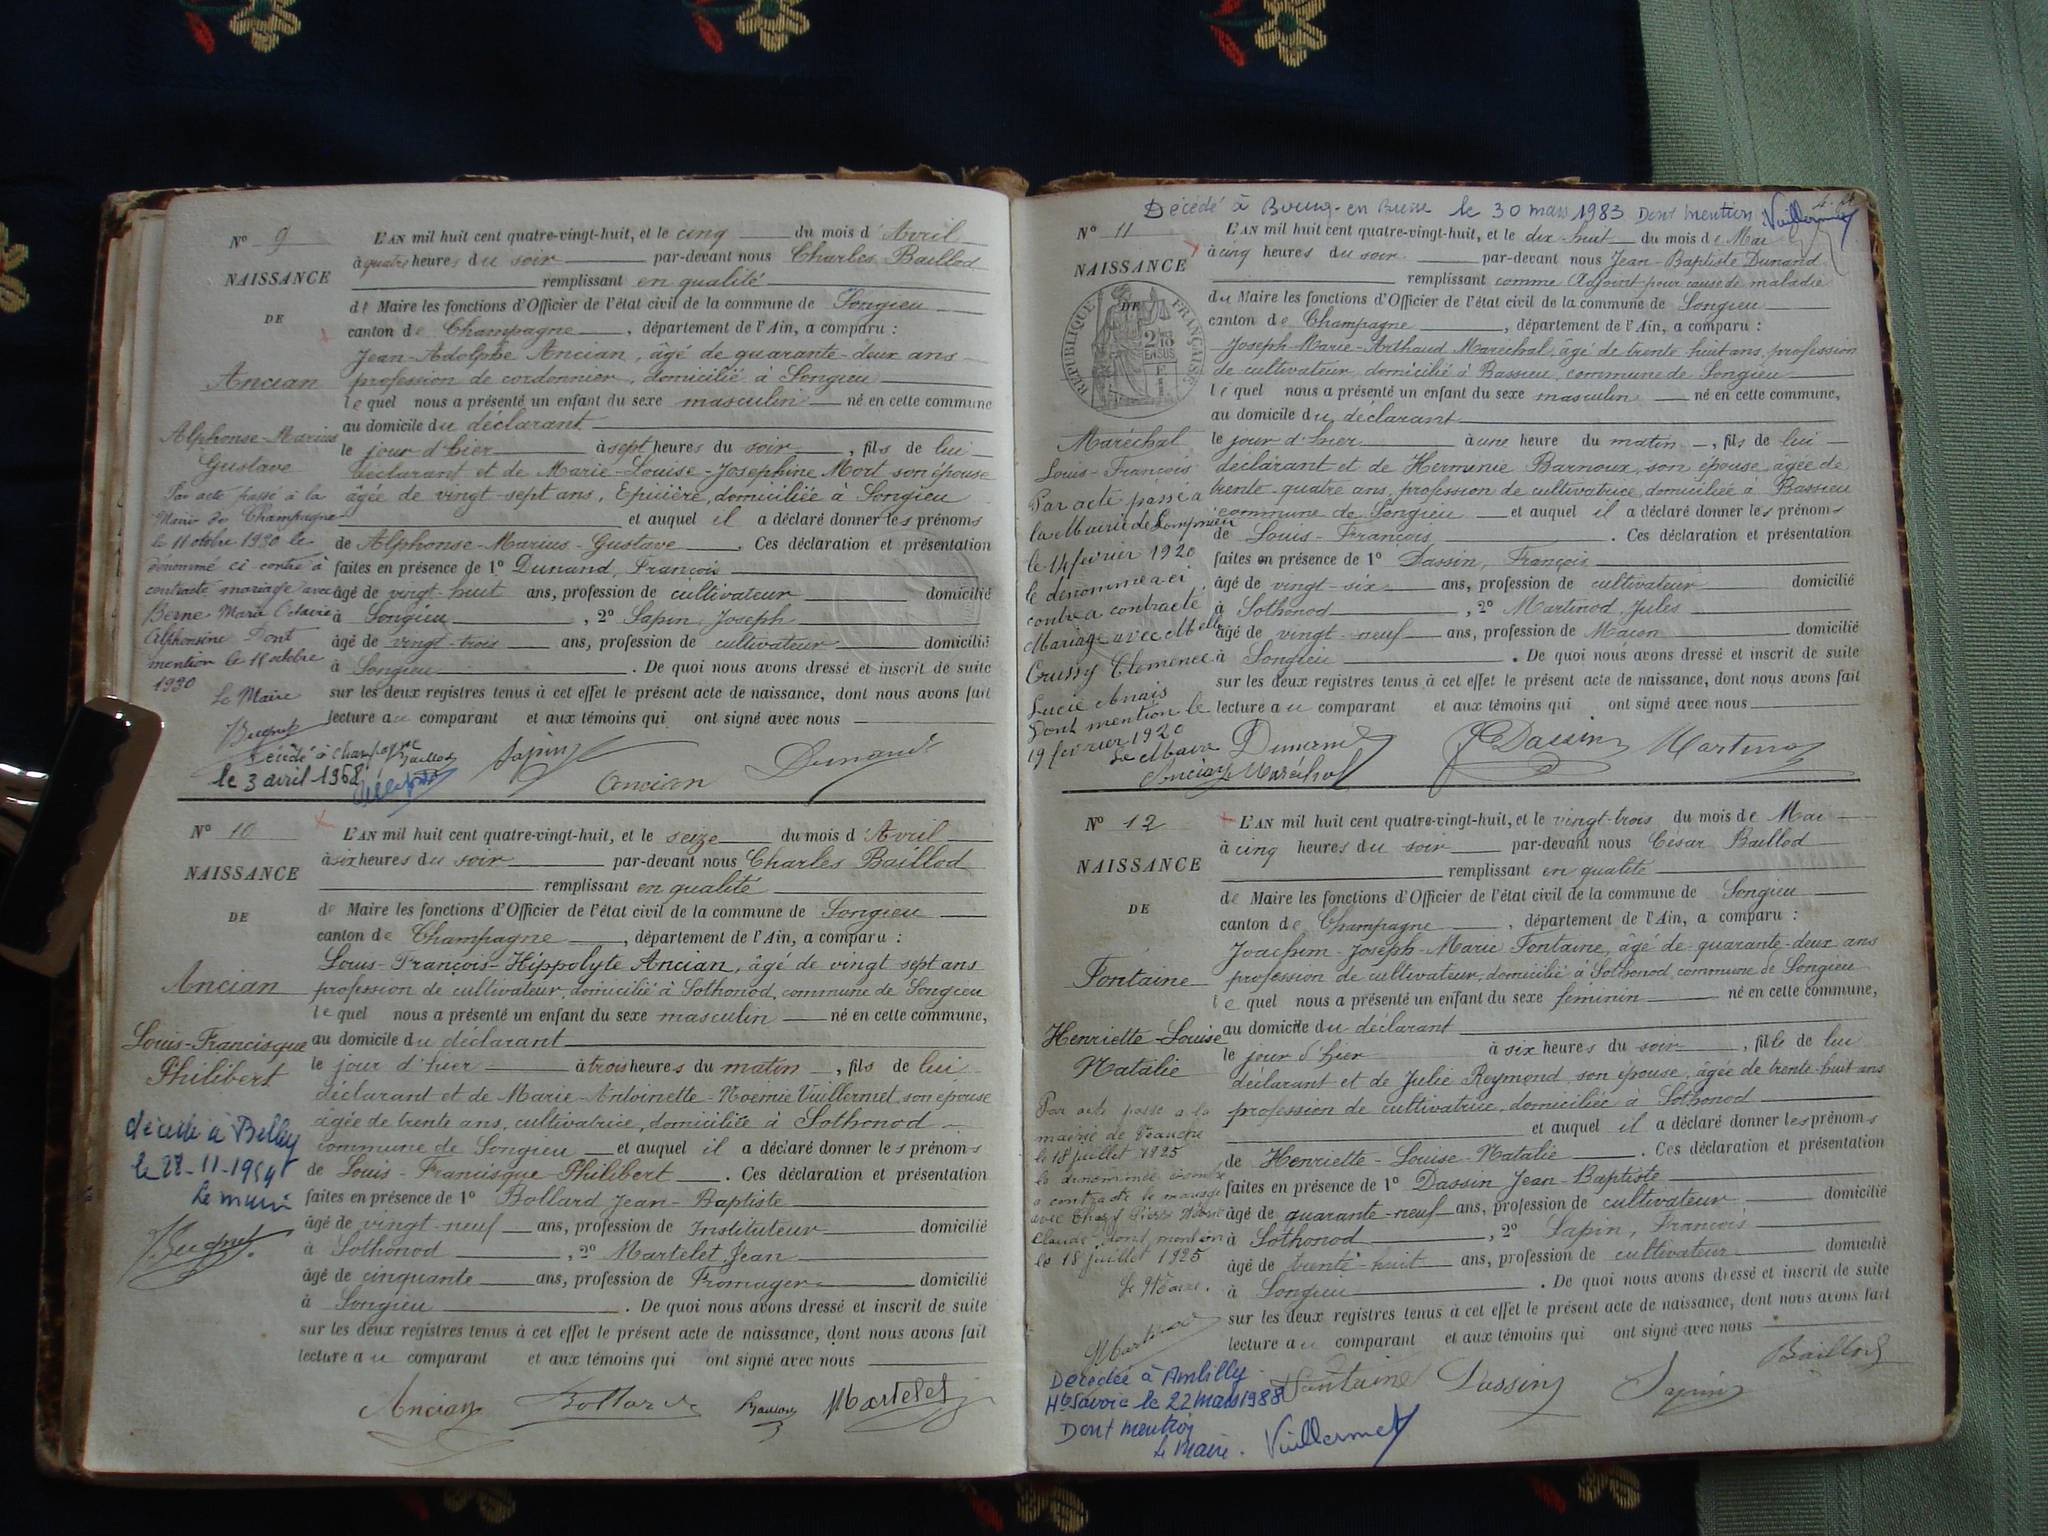 N° 9
NAISSANCE
DE
Ancian
Alphonse-Marius
Gustave
Par acte passé à la
Mairie de Champagne
le 11 octobre 1920 le
dénommé ci contre à
contracté mariage avec
Berne Marie Octavie
Alphonsine Dont
mention le 15 octobre
1920
Le Maire
Décédé à Champagne
le 3 avril 1968
L'AN mil huit cent quatre-vingt-huit, et le cinq du mois d'Avril
à quatre heures du soir par-devant nous Charles Baillod
remplissant en qualité
de Maire les fonctions d'Officier de l'état civil de la commune de Songieu
canton de Champagne, département de l'Ain, a comparu :
Jean-Adolphe Ancian, âgé de quarante-deux ans
profession de cordonnier, domicilié à Songieu
lequel nous a présenté un enfant du sexe masculin né en cette commune
au domicile du déclarant
le jour d'hier à sept heures du soir, fils de lui
déclarant et de Marie-Louise-Josephine Mort son épouse
âgée de vingt-sept ans, Epicière, domiciliée à Songieu
et auquel il a déclaré donner les prénoms
de Alphonse-Marius-Gustave. Ces déclaration et présentation
faites en présence de 1° Dunand, François
âgé de vingt-huit ans, profession de cultivateur domicilié
à Songieu, 2° Sapin, Joseph
âgé de vingt-trois ans, profession de cultivateur domicilié
à Songieu. De quoi nous avons dressé et inscrit de suite
sur les deux registres tenus à cet effet le présent acte de naissance, dont nous avons fait
lecture au comparant et aux témoins qui ont signé avec nous
Baillod Sapin Ancian Dunand
N° 10
NAISSANCE
DE
Ancian
Louis-Francisque
Philibert
décédé à Belley
le 28-11-1954
Le maire
L'AN mil huit cent quatre-vingt-huit, et le seize du mois d'Avril
à six heures du soir par-devant nous Charles Baillod
remplissant en qualité
de Maire les fonctions d'Officier de l'état civil de la commune de Songieu
canton de Champagne, département de l'Ain, a comparu :
Louis-François-Hippolyte Ancian, âgé de vingt sept ans
profession de cultivateur, domicilié à Sothonod, commune de Songieu
lequel nous a présenté un enfant du sexe masculin né en cette commune,
au domicile du déclarant
le jour d'hier à trois heures du matin, fils de lui
déclarant et de Marie-Antoinette-Noemie Vuillermet, son épouse
âgée de trente ans, cultivatrice, domiciliée à Sothonod
commune de Songieu et auquel il a déclaré donner les prénoms
de Louis-Francisque-Philibert. Ces déclaration et présentation
faites en présence de 1° Bollard Jean-Baptiste
âgé de vingt-neuf ans, profession de Instituteur domicilié
à Sothonod, 2° Martelet Jean
âgé de cinquante ans, profession de Fromager domicilié
à Songieu. De quoi nous avons dressé et inscrit de suite
sur les deux registres tenus à cet effet le présent acte de naissance, dont nous avons fait
lecture au comparant et aux témoins qui ont signé avec nous
Ancian Bollard Baillod Martelet
Décédé à Bourg-en Bresse le 30 mars 1983 Dont mention Vuillermet
N° 11
NAISSANCE
DE
RÉPUBLIQUE FRANÇAISE
Maréchal
Louis-François
Par acte passé à
la Mairie de Lompnieu
le 14 fevrier 1920
le dénommé ci
contre a contracté
Mariage avec Melle
Crussy Clemence
Lucie Anaïs
Dont mention le
19 fevrier 1920
Le Maire
L'AN mil huit cent quatre-vingt-huit, et le dix-huit du mois de Mai
à cinq heures du soir par-devant nous Jean-Baptiste Dunand
remplissant comme Adjoint pour cause de maladie
du Maire les fonctions d'Officier de l'état civil de la commune de Songieu
canton de Champagne, département de l'Ain, a comparu :
Joseph-Marie-Arthaud Maréchal, âgé de trente huit ans, profession
de cultivateur, domicilié à Bassieu, commune de Songieu
lequel nous a présenté un enfant du sexe masculin né en cette commune,
au domicile du déclarant
le jour d'hier à une heure du matin, fils de lui
déclarant et de Herminie Barnoux, son épouse, âgée de
trente-quatre ans, profession de cultivatrice, domiciliée à Bassieu
commune de Songieu et auquel il a déclaré donner les prénoms
de Louis-François. Ces déclaration et présentation
faites en présence de 1° Dassin, François
âgé de vingt-six ans, profession de cultivateur domicilié
à Sothonod, 2° Martinod Jules
âgé de vingt-neuf ans, profession de Macon domicilié
à Songieu. De quoi nous avons dressé et inscrit de suite
sur les deux registres tenus à cet effet le présent acte de naissance, dont nous avons fait
lecture au comparant et aux témoins qui ont signé avec nous
Dunand Dassin Martinod
Ancian Maréchal
N° 12
NAISSANCE
DE
Fontaine
Henriette-Louise
Natalie
Par acte passé a la
mairie de
le 18 juillet 1925
la dénommée contre
a contracté le mariage
avec Pierre
Claude dont mention
le 18 juillet 1925
Le Maire.
Décédée à Ambilly
Hte Savoie le 22 mars 1988
Dont mention
Le Maire. Vuillermet
L'AN mil huit cent quatre-vingt-huit, et le vingt-trois du mois de Mai
à cinq heures du soir par-devant nous César Baillod
remplissant en qualité
de Maire les fonctions d'Officier de l'état civil de la commune de Songieu
canton de Champagne, département de l'Ain, a comparu :
Joachim-Joseph-Marie Fontaine, âgé de quarante-deux ans
profession de cultivateur, domicilié à Sothonod, commune de Songieu
lequel nous a présenté un enfant du sexe féminin né en cette commune,
au domicile du déclarant
le jour d'hier à six heures du soir, fille de lui
déclarant et de Julie Reymond, son épouse, âgée de trente-huit ans
profession de cultivatrice, domiciliée à Sothonod
et auquel il a déclaré donner les prénoms
de Henriette-Louise-Natalie. Ces déclaration et présentation
faites en présence de 1° Dassin Jean-Baptiste
âgé de quarante-neuf ans, profession de cultivateur domicilié
à Sothonod, 2° Sapin, François
âgé de trente-huit ans, profession de cultivateur domicilié
à Songieu. De quoi nous avons dressé et inscrit de suite
sur les deux registres tenus à cet effet le présent acte de naissance, dont nous avons fait
lecture au comparant et aux témoins qui ont signé avec nous
Fontaine Dassin Sapin Baillod